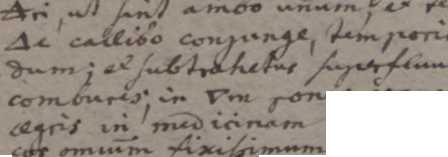 ut sint amoo unum, et
de callibo conjunge, tempori
dum; et subtrahetur superfluu
combures; in Vm pon
aegris in medicinam
cor omium fixissimum